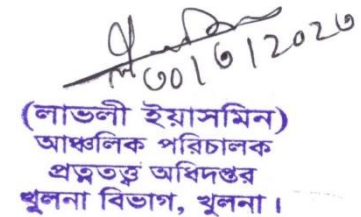 ৩০/৩/২০২৩
(লাভলী ইয়াসমিন)
আঞ্চলিক পরিচালক
প্রত্নতত্ত্ব অধিদপ্তর
খুলনা বিভাগ, খুলনা।